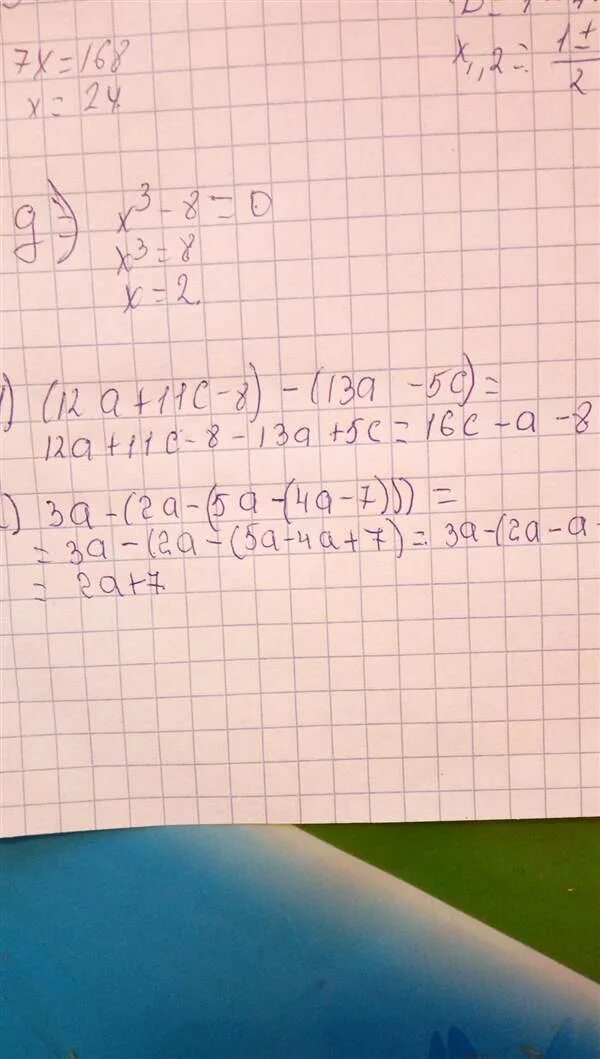 7x=168
x=24
x₁,₂= 1±/2
g) x³-8=0
x³=8
x=2.
) (12a+11c-8)-(13a -5c)=
12a+11c-8-13a+5c=16c-a-8
) 3a-(2a-(5a-(4a-7)))=
=3a-(2a-(5a-4a+7)=3a-(2a-a-
=2a+7